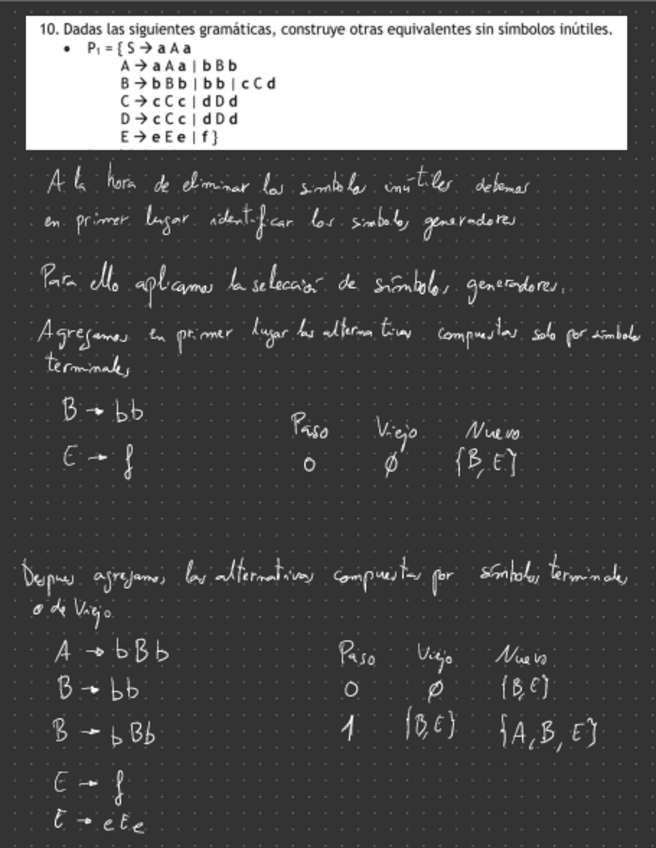 10. Dadas las siguientes gramáticas, construye otras equivalentes sin símbolos inútiles.
• P₁ = { S → a A a
A → a A a | b B b
B → b B b | b b | c C d
C → c C c | d D d
D → c C c | d D d
E → e E e | f }
A la hora de eliminar los simbolos inútiles debemos
en primer lugar identificar los simbolos generadores.
Para ello aplicamos la selección de símbolos generadores.
Agregamos en primer lugar las alternativas compuestas solo por simbolos
terminales
B → bb
Paso Viejo Nuevo
E → f
0 ∅ {B, E}
Despues agregamos las alternativas compuestas por símbolos terminales
o de Viejo.
A → bBb
Paso Viejo Nuevo
B → bb
0 ∅ {B,E}
B → bBb
1 {B,E} {A, B, E}
E → f
E → eEe